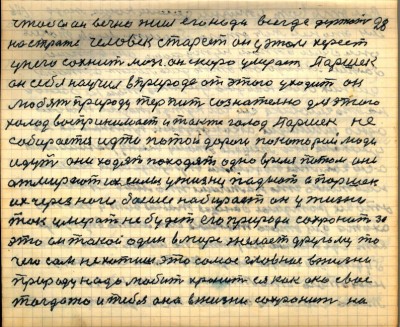 чтобы он вечно жил его надо всегде держать 28
на страже человек стареет он у этом хереет
у него сохнит мозг он скоро умирает Паршек
он себя научил в природе от этого уходит он
любят природу терпит сознателно для этого
холод воспринимает и также голод Паршек не
собирается идти по той дороги по которой люди
идут они ходят походят одно время потом они
отмирают их силы у жизни падают а паршек
их через ноги больше набирает он у жизни
так умерать не будет его природа сохронит за
это он такой один в мире желает другому то
чего сам не хотиш это самое главное в жизни
природу надо любит хронит ея как око свое
тагдато и тибя она в жизни сохронит на